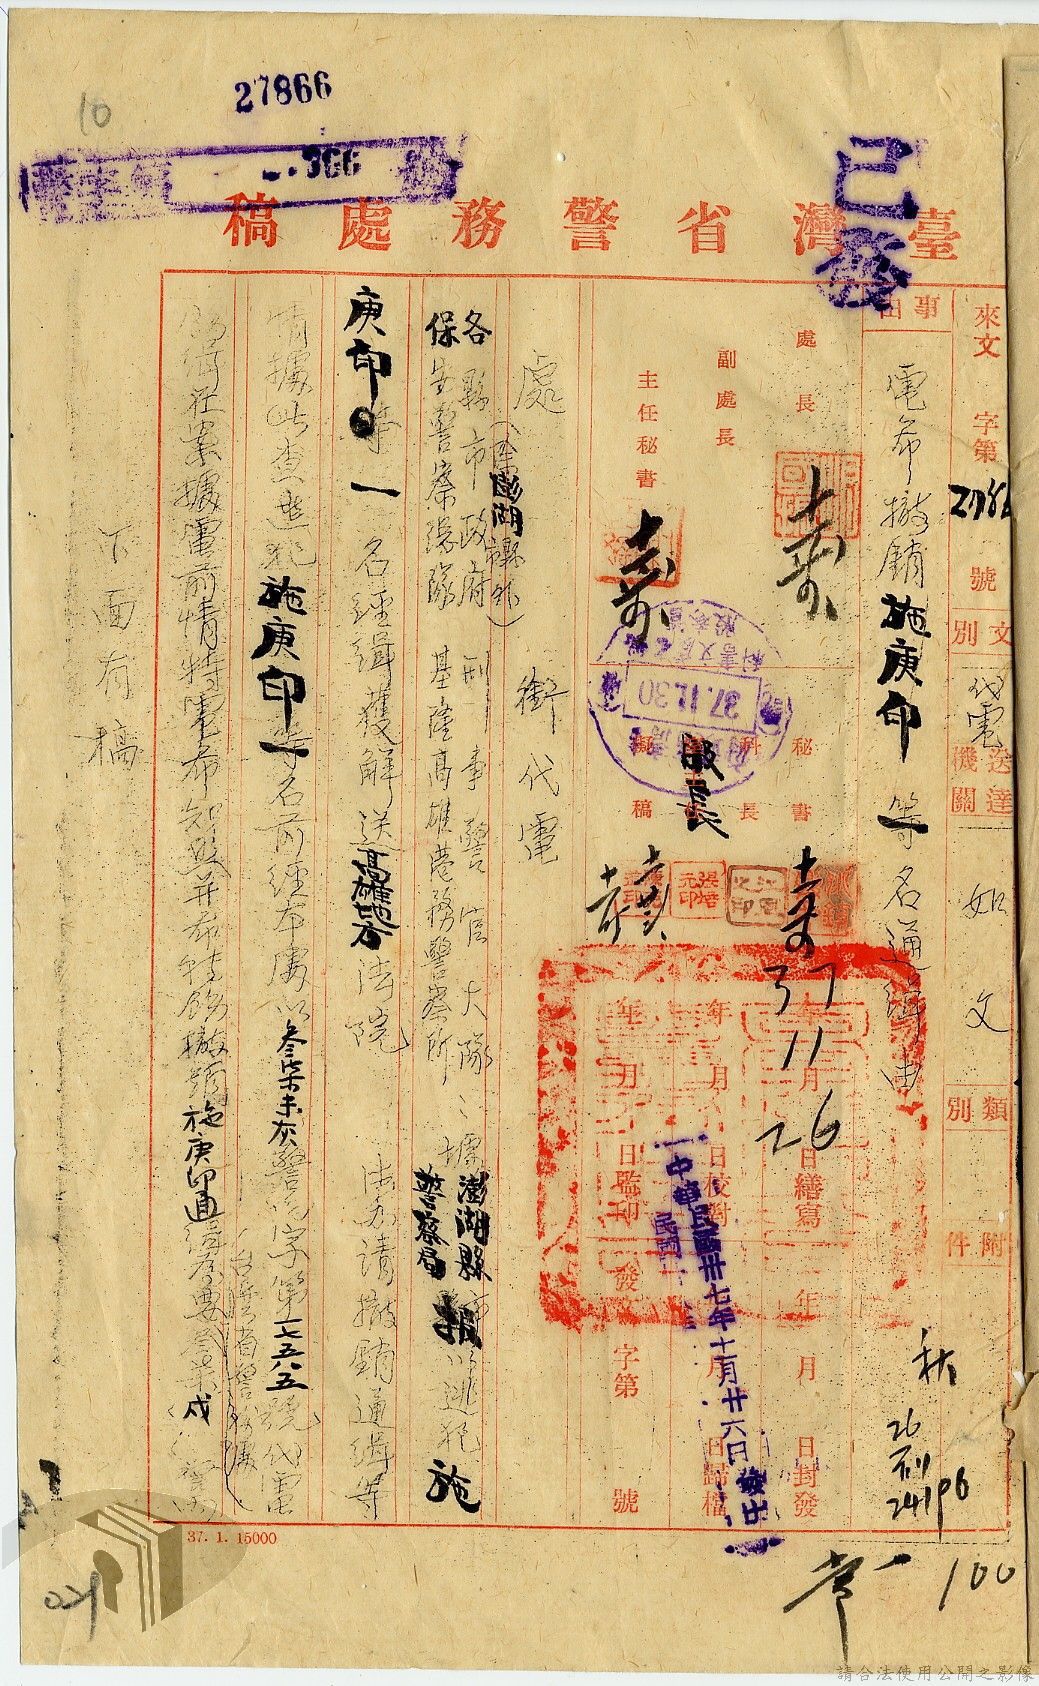 27866
10
已發
臺灣省警務處稿
來文 字第 號
文別 代電
送達機關 如文
類別
附件
事由
電希撤銷施庚印一等名通緝由
處長
副處長
主任秘書
秘書
科長
股長
擬稿
37.11.30
37 11 26
年 月 日繕寫
年 月 日校對
年 月 日監印
年 月 日封發
月 日歸檔
發 字第 號
中華民國卅七年十一月廿六日發出
處銜代電
各縣市政府刑事警官大隊
(除澎湖縣外)
保安警察總隊 基隆高雄港務警察所
據澎湖縣警察局報
逃犯施
庚印等一名經緝獲解送高雄地方法院 法辦請撤銷通緝等
情據此查逃犯施庚印一等名前經本處以叁柒未灰警 字第一七五八五號代電
緝在案據電前情特電希知照并希轉飭撤銷施庚印通緝為要
臺灣省警務處
下面有稿
秋
26
24196
100
37. 1. 15000
請合法使用公開之影像